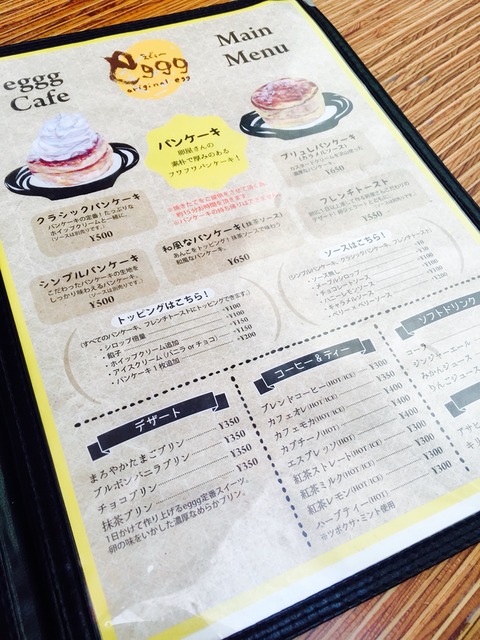 eggg
Cafe
えぐー
eggg
original egg
Main
Menu
パンケーキ
卵屋さんの
素朴で厚みのある
フワフワパンケーキ！
※焼きたてをご提供させて頂く為、
約15分お時間を頂きます。
※パンケーキの持ち帰りはできません。
クラシックパンケーキ
パンケーキの定番！たっぷりな
ホイップクリームと一緒に。
（ソースは別売りです。）
¥500
ブリュレパンケーキ
（カラメルソース）
¥650
シンプルパンケーキ
こだわったパンケーキの生地を
しっかり味わえるパンケーキ。
（ソースは別売りです。）
¥500
和風なパンケーキ（抹茶ソース）
あんこをトッピング！抹茶ソースで味わう
和風なパンケーキ。
¥650
フレンチトースト
¥550
トッピングはこちら！
（すべてのパンケーキ、フレンチトーストにトッピングできます。）
・シロップ倍量 ¥100
・餡子 ¥100
・ホイップクリーム追加 ¥100
・アイスクリーム（バニラ or チョコ） ¥150
・パンケーキ1枚追加 ¥200
ソースはこちら！
（シンプルパンケーキ、クラシックパンケーキ、フレンチトースト）
・ソース無し
・メープルシロップ
・チョコレートソース
・ハニーレモンソース
・キャラメルソース
・ベリーベリーソース
デザート
まろやかたまごプリン ¥350
ブルボンバニラプリン ¥350
チョコプリン ¥350
抹茶プリン ¥350
1日かけて作り上げるeggg定番スイーツ。
卵の味をいかした濃厚なめらかプリン。
コーヒー＆ティー
ブレンドコーヒー(HOT/ICE) ¥300
カフェオレ(HOT/ICE) ¥340
カフェモカ(HOT/ICE) ¥400
カプチーノ(HOT) ¥400
エスプレッソ(HOT) ¥300
紅茶ストレート(HOT/ICE) ¥300
紅茶ミルク(HOT/ICE) ¥300
紅茶レモン(HOT/ICE)
ハーブティー(HOT)
※ツボクサ・ミント使用
ソフトドリンク
コーラ
ジンジャーエール
みかんジュース
りんごジュース